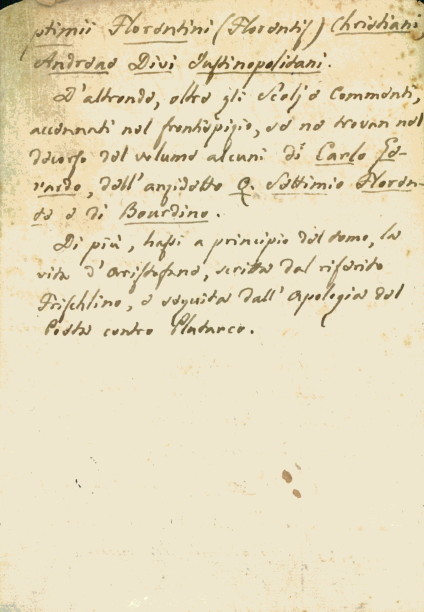 ptimii Florentini (Florentis) Christiani,
Andreae Divi Iustinopolitani.
D'altronde, oltre gli Scolj e Commenti,
accennati nel frontispizio, se ne trovan nel
decorso del volume alcuni di Carlo Ge-
rardo, dell'anzidetto Q. Settimio Floren-
te e di Bourdino.
Di più, hassi a principio del tomo, la
vita d'Aristofane, scritta dal riferito
Frischlino, e seguita dall'Apologia del
Poeta contro Plutarco.